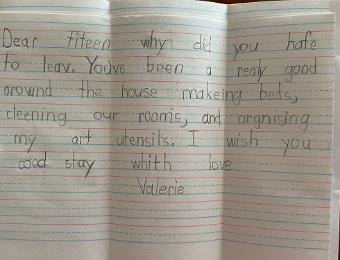 Dear fifeen why did you hafe
to leav. You've been a realy good
around the house makeing beds,
cleening our rooms, and orgnising
my art utensils. I wish you
good stay whith love
Valerie